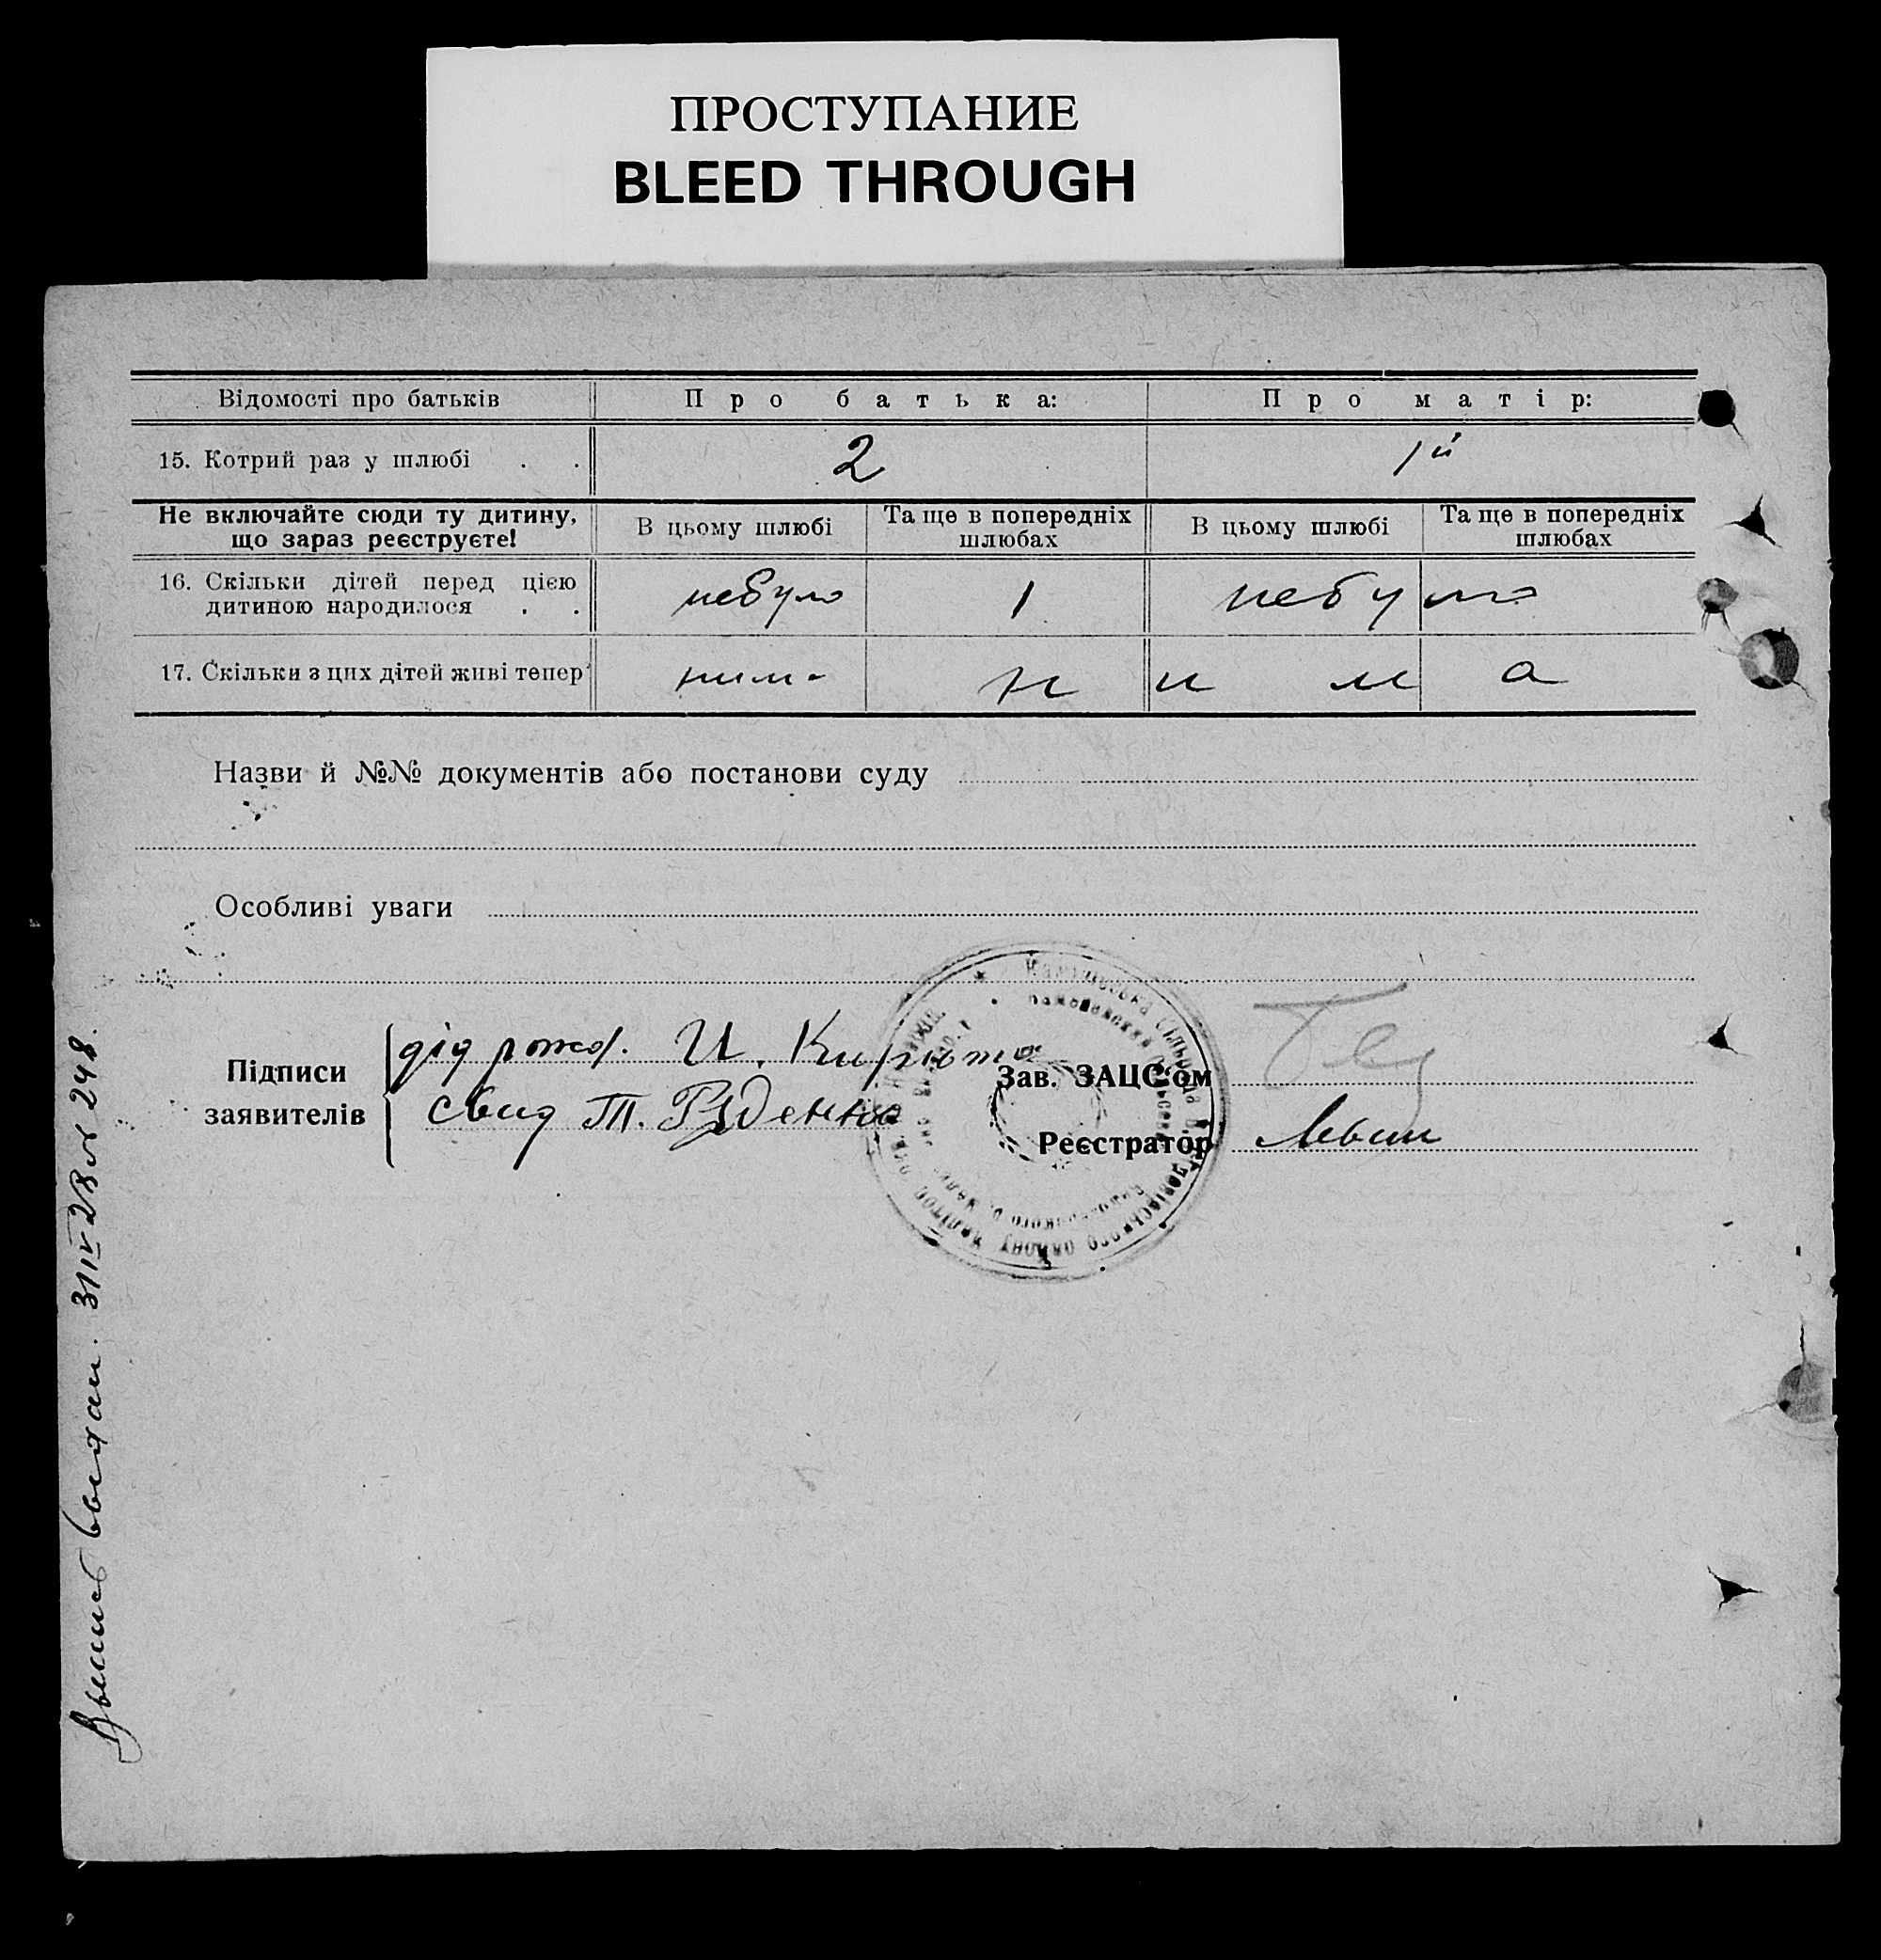 ПРОСТУПАНИЕ
BLEED THROUGH
Відомості про батьків Про батька: Про матір:
15. Котрий раз у шлюбі . . 2 1й
Не включайте сюди ту дитину, що зараз реєструєте! В цьому шлюбі Та ще в попередніх шлюбах В цьому шлюбі Та ще в попередніх шлюбах
16. Скільки дітей перед цією дитиною народилося . . небуло 1 небуло
17. Скільки з цих дітей живі тепер нима нима
Назви й №№ документів або постанови суду
Особливі уваги
Підписи заявителів
дід И.
свид Т. Руденко
Зав. ЗАЦС'ом
Реєстратор
248.